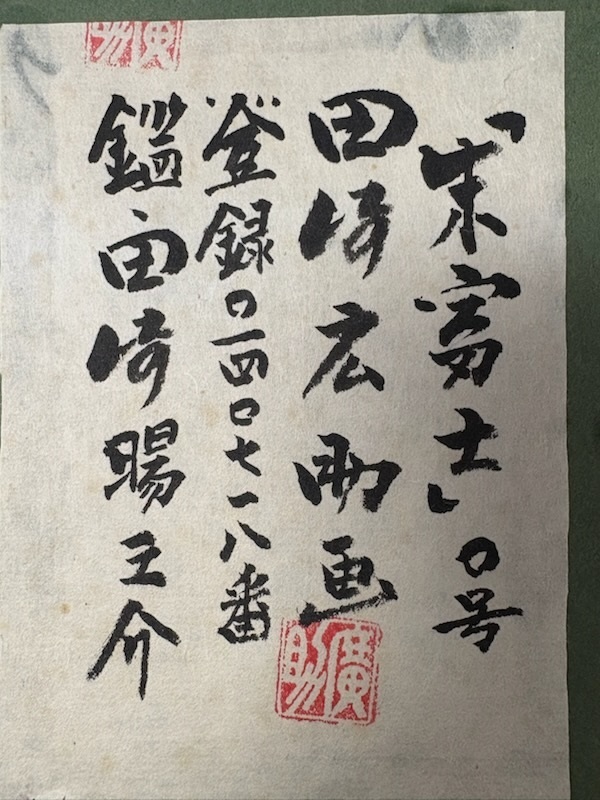 「朱富士」〇号
田崎広助画
廣助
登録〇一四〇七一八番
鑑田崎暘之介